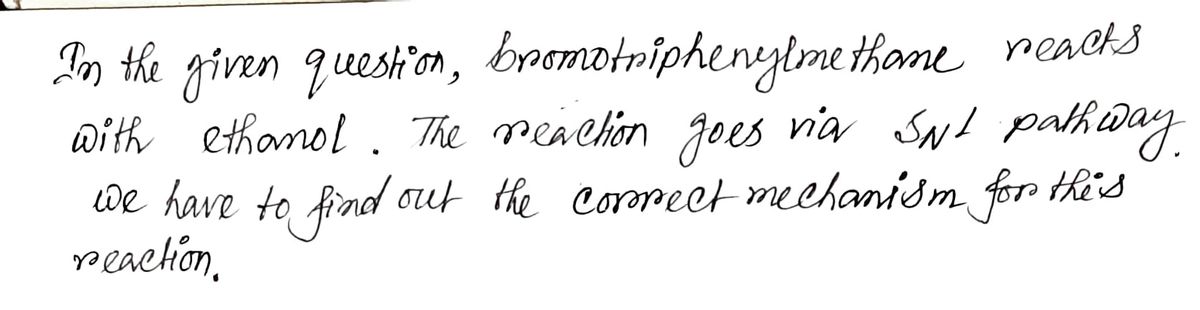 In the given question, bromotriphenylmethane reacts
with ethanol. The reaction goes via SN1 pathway.
we have to find out the correct mechanism for this
reaction.